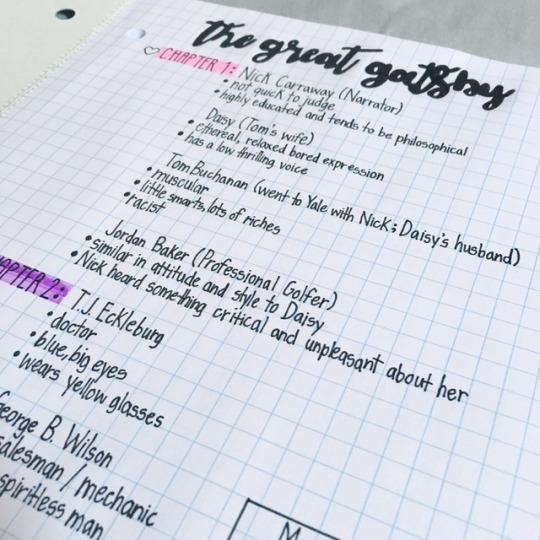 the great gatsby
CHAPTER 1:
Nick Carraway (Narrator)
• not quick to judge
• highly educated and tends to be philosophical
Daisy (Tom's wife)
• ethereal, relaxed bored expression
• has a low thrilling voice
Tom Buchanan (went to Yale with Nick; Daisy's husband)
• muscular
• little smarts, lots of riches
• racist
Jordan Baker (Professional Golfer)
• similar in attitude and style to Daisy
• Nick heard something critical and unpleasant about her
CHAPTER 2:
T.J. Eckleburg
• doctor
• blue, big eyes
• wears yellow glasses
George B. Wilson
salesman / mechanic
spiritless man